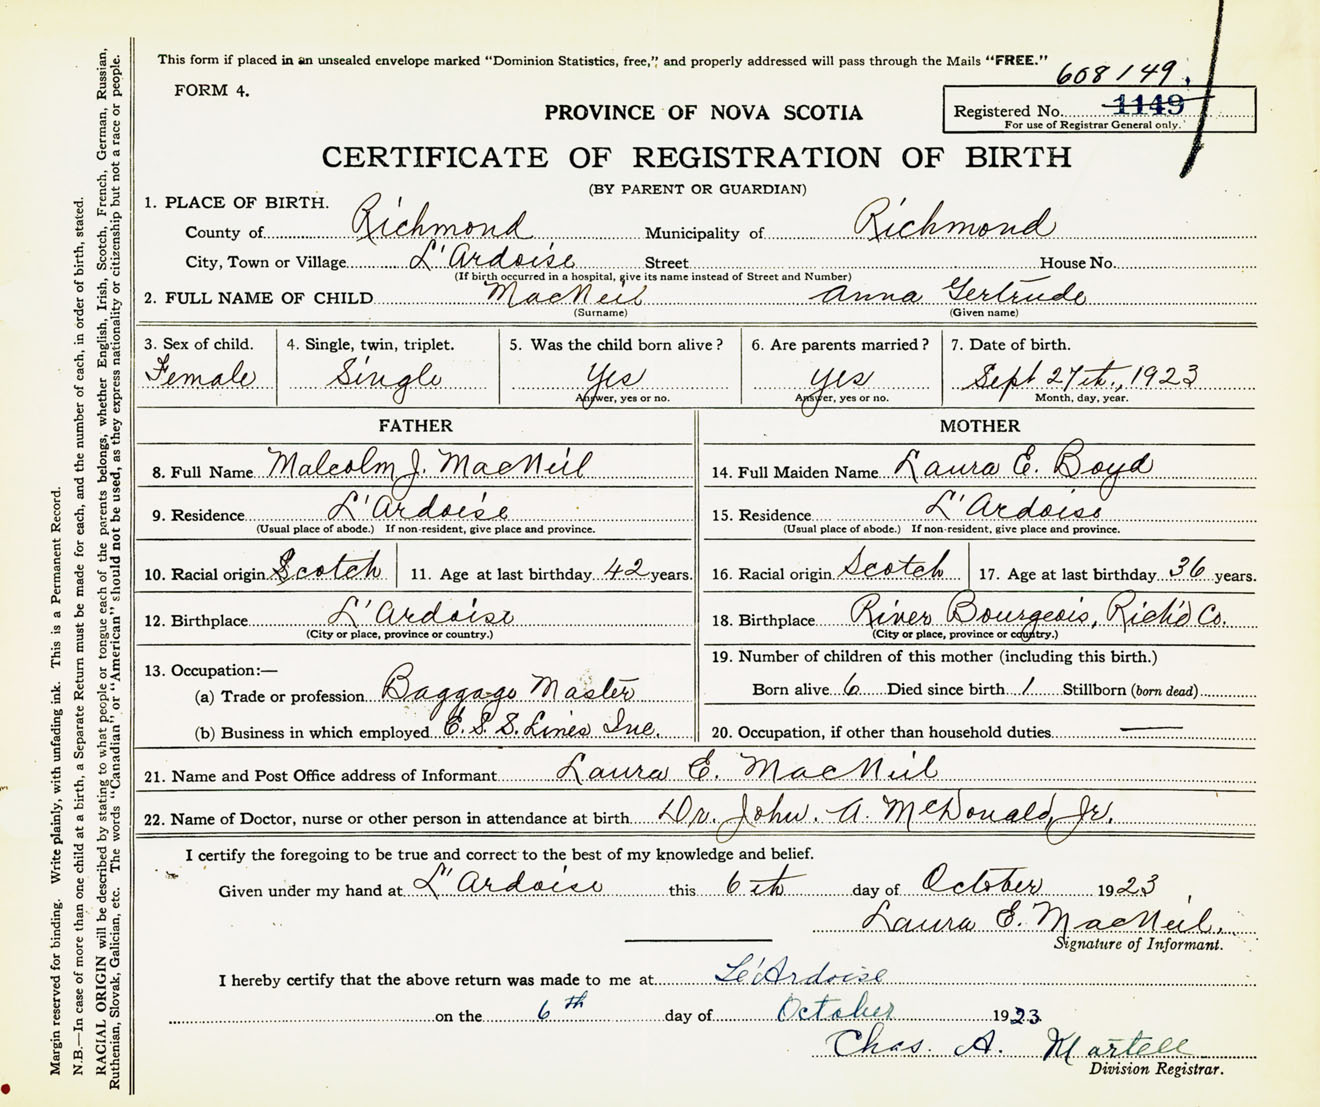 This form if placed in an unsealed envelope marked "Dominion Statistics, free," and properly addressed will pass through the Mails "FREE."
608149.
FORM 4.
PROVINCE OF NOVA SCOTIA
Registered No. 1149
For use of Registrar General only.
CERTIFICATE OF REGISTRATION OF BIRTH
(BY PARENT OR GUARDIAN)
1. PLACE OF BIRTH.
County of Richmond Municipality of Richmond
City, Town or Village L'Ardoise Street House No.
(If birth occurred in a hospital, give its name instead of Street and Number)
2. FULL NAME OF CHILD MacNeil Anna Gertrude
(Surname) (Given name)
3. Sex of child. 4. Single, twin, triplet. 5. Was the child born alive? 6. Are parents married? 7. Date of birth.
Female Single Yes Yes Sept 27th., 1923
Answer, yes or no. Answer, yes or no. Month, day, year.
FATHER MOTHER
8. Full Name Malcolm J. MacNeil 14. Full Maiden Name Laura E. Boyd
9. Residence L'Ardoise 15. Residence L'Ardoise
(Usual place of abode.) If non-resident, give place and province. (Usual place of abode.) If non-resident, give place and province.
10. Racial origin Scotch 11. Age at last birthday 42 years. 16. Racial origin Scotch 17. Age at last birthday 36 years.
12. Birthplace L'Ardoise 18. Birthplace River Bourgeois, Rich'd Co.
(City or place, province or country.) (City or place, province or country.)
13. Occupation:— 19. Number of children of this mother (including this birth.)
(a) Trade or profession Baggage Master Born alive 6 Died since birth 1 Stillborn (born dead)
(b) Business in which employed E. S. S. Lines Inc. 20. Occupation, if other than household duties —
21. Name and Post Office address of Informant Laura E. MacNeil
22. Name of Doctor, nurse or other person in attendance at birth Dr. John. A. McDonald, Jr.
I certify the foregoing to be true and correct to the best of my knowledge and belief.
Given under my hand at L'Ardoise this 6th day of October 1923
Laura E. MacNeil.
Signature of Informant.
I hereby certify that the above return was made to me at Le'Ardoise
on the 6th day of October 1923
Chas. A. Martell
Division Registrar.
Margin reserved for binding. Write plainly, with unfading ink. This is a Permanent Record.
N.B.—In case of more than one child at a birth, a Separate Return must be made for each, and the number of each, in order of birth, stated.
RACIAL ORIGIN will be described by stating to what people or tongue each of the parents belongs, whether English, Irish, Scotch, French, German, Russian,
Ruthenian, Slovak, Galician, etc. The words "Canadian" or "American" should not be used, as they express nationality or citizenship but not a race or people.